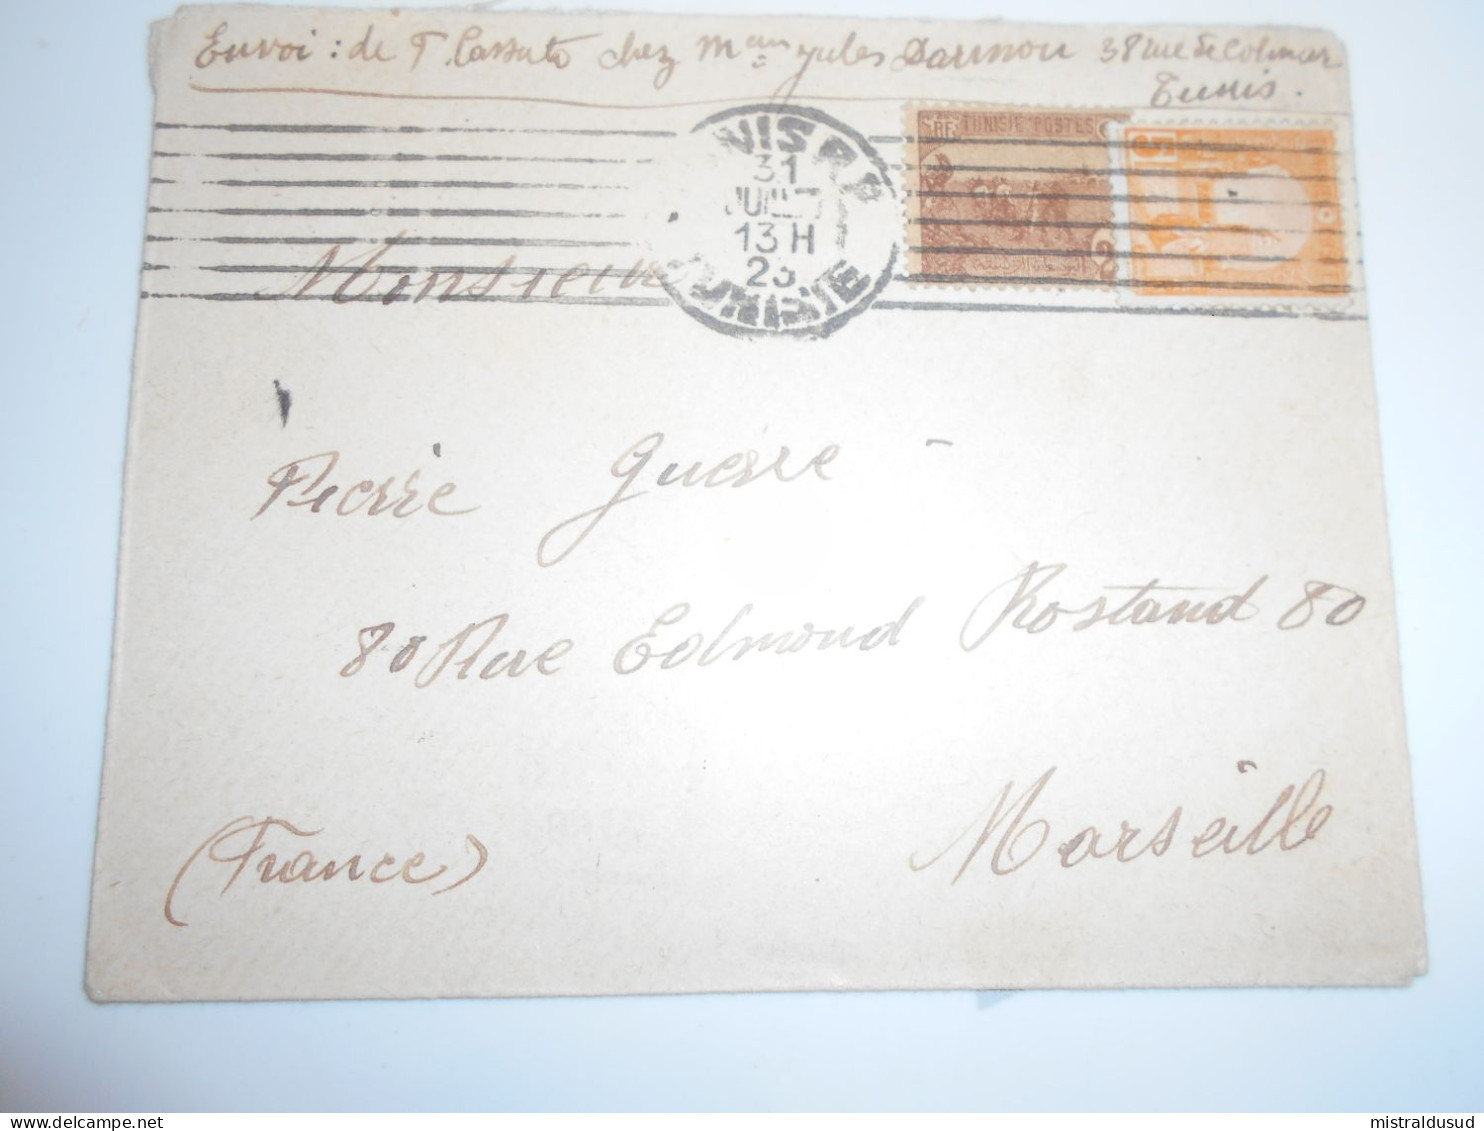 Envoi : de T. Cassuto chez Man Jules Darmon 38 rue de Colmar
Tunis.
TUNIS R.P
31
JUILLET
13 H
23
TUNISIE
RF TUNISIE POSTES
2
5
Monsieur
Pierre Guerre
80 Rue Edmond Rostand 80
Marseille
(France)
mistraldusud